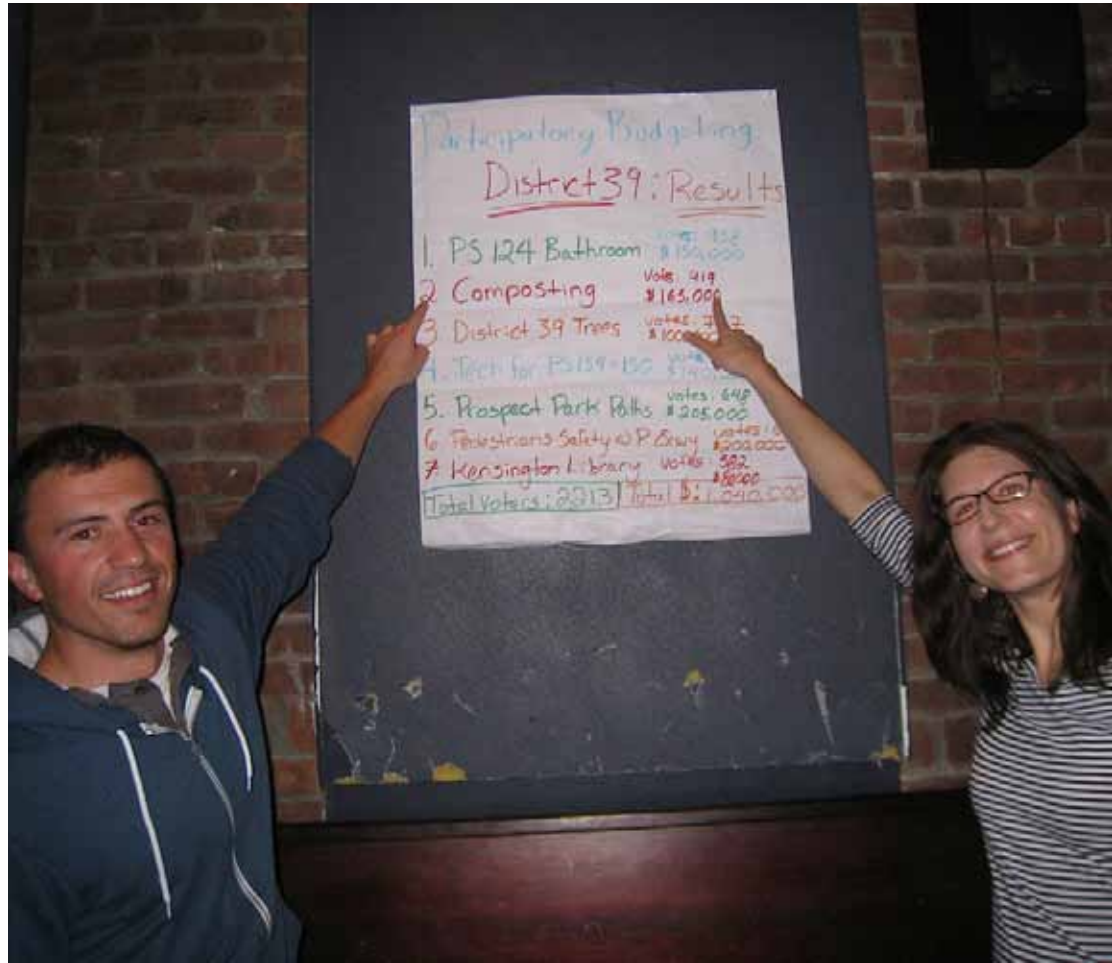 Participatory Budgeting
District 39: Results
1. PS 124 Bathroom
$150,000
2 Composting Vote: 419
$165,000
3. District 39 Trees votes:
4. Tech for PS 159 + 130
5. Prospect Park Paths votes: 648
$205,000
6 Pedestrians Safety
$200,000
7. Kensington Library votes: 582
$80,000
Total Voters: 2213 Total $: 1,040,000